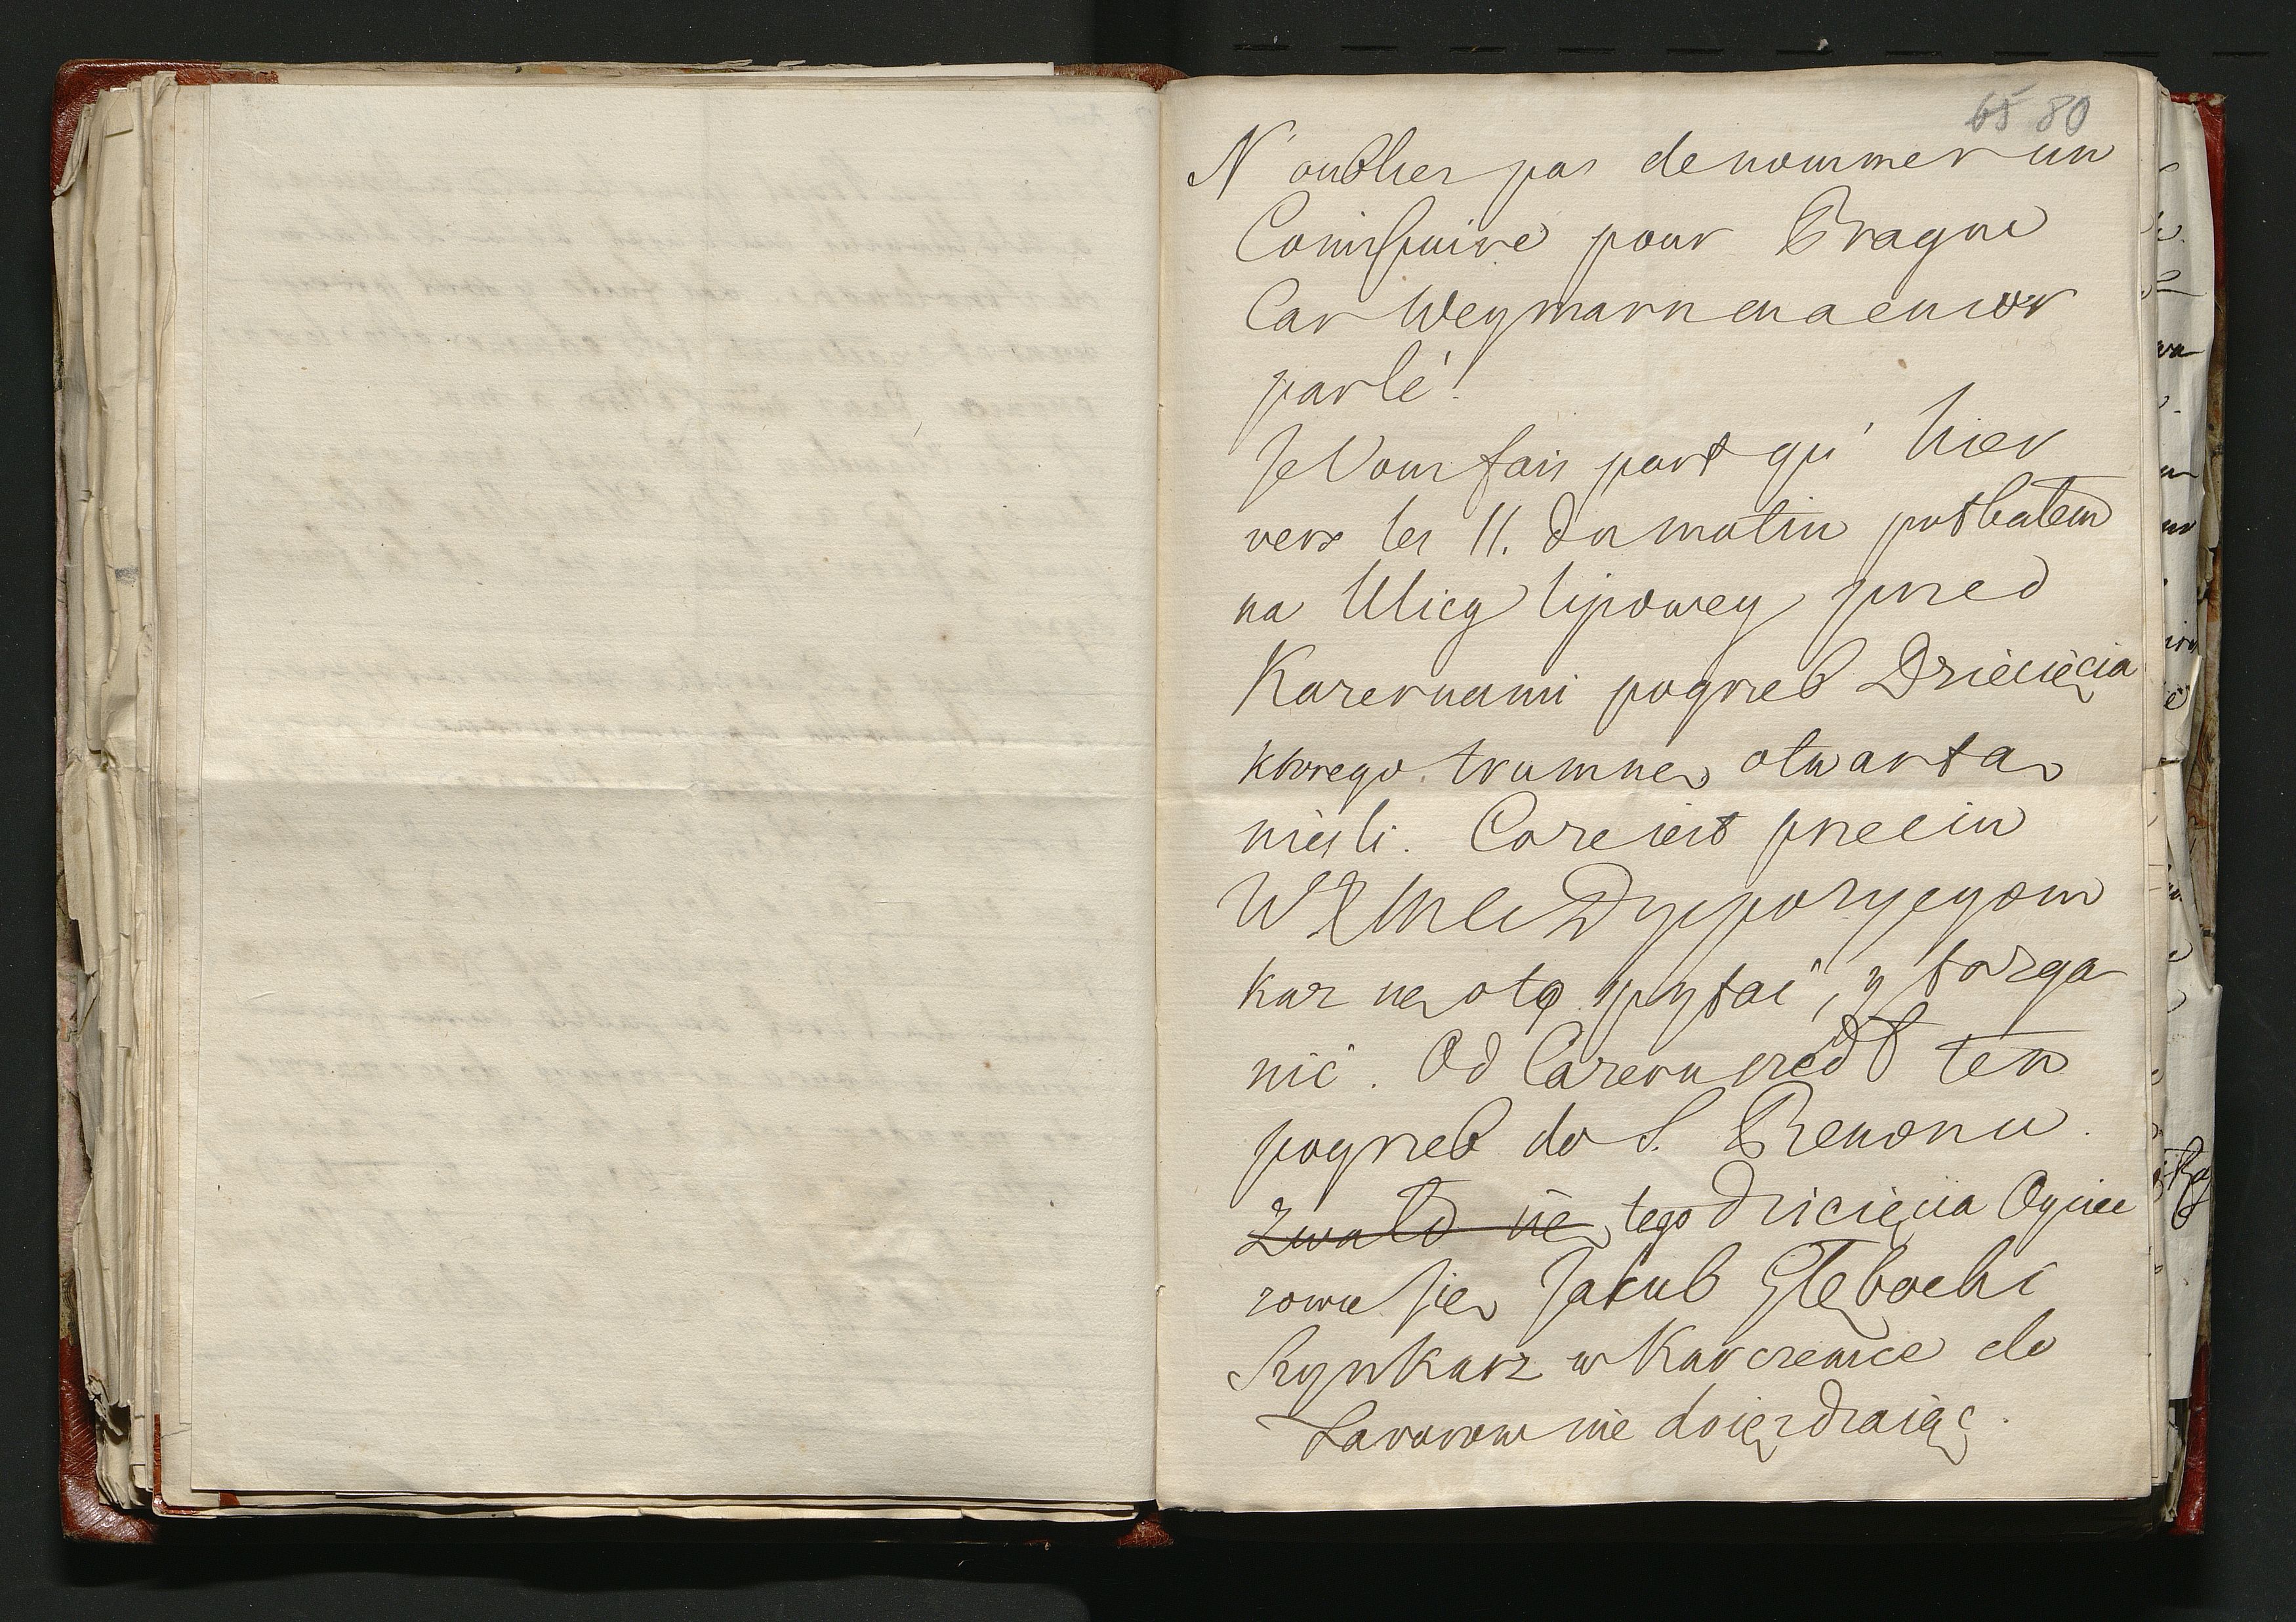 65 80
N'oublies pas de nommer un
Comissaire pour Prague
Car Weymarn en a encor
parlé!
Je Vous fais part qu' hier
vers les 11. du matin potkałem
na Ulicy lipowey przed
Kazernami pogrzeb Dziecięcia
ktorego trumnę otwartą
niesli. Co ze iest przeciw
W K Mci Dyspozycyom
każ się o to pytać, y pozga
nić. Od Cazern szedł ten
pogrzeb do S. Benonu.
Zwało się tego dziecięcia Oyciec
zowie sie Jakub Głębocki
Szynkarz w Karczemce do
Lavarow nie doieżdzaiąc.